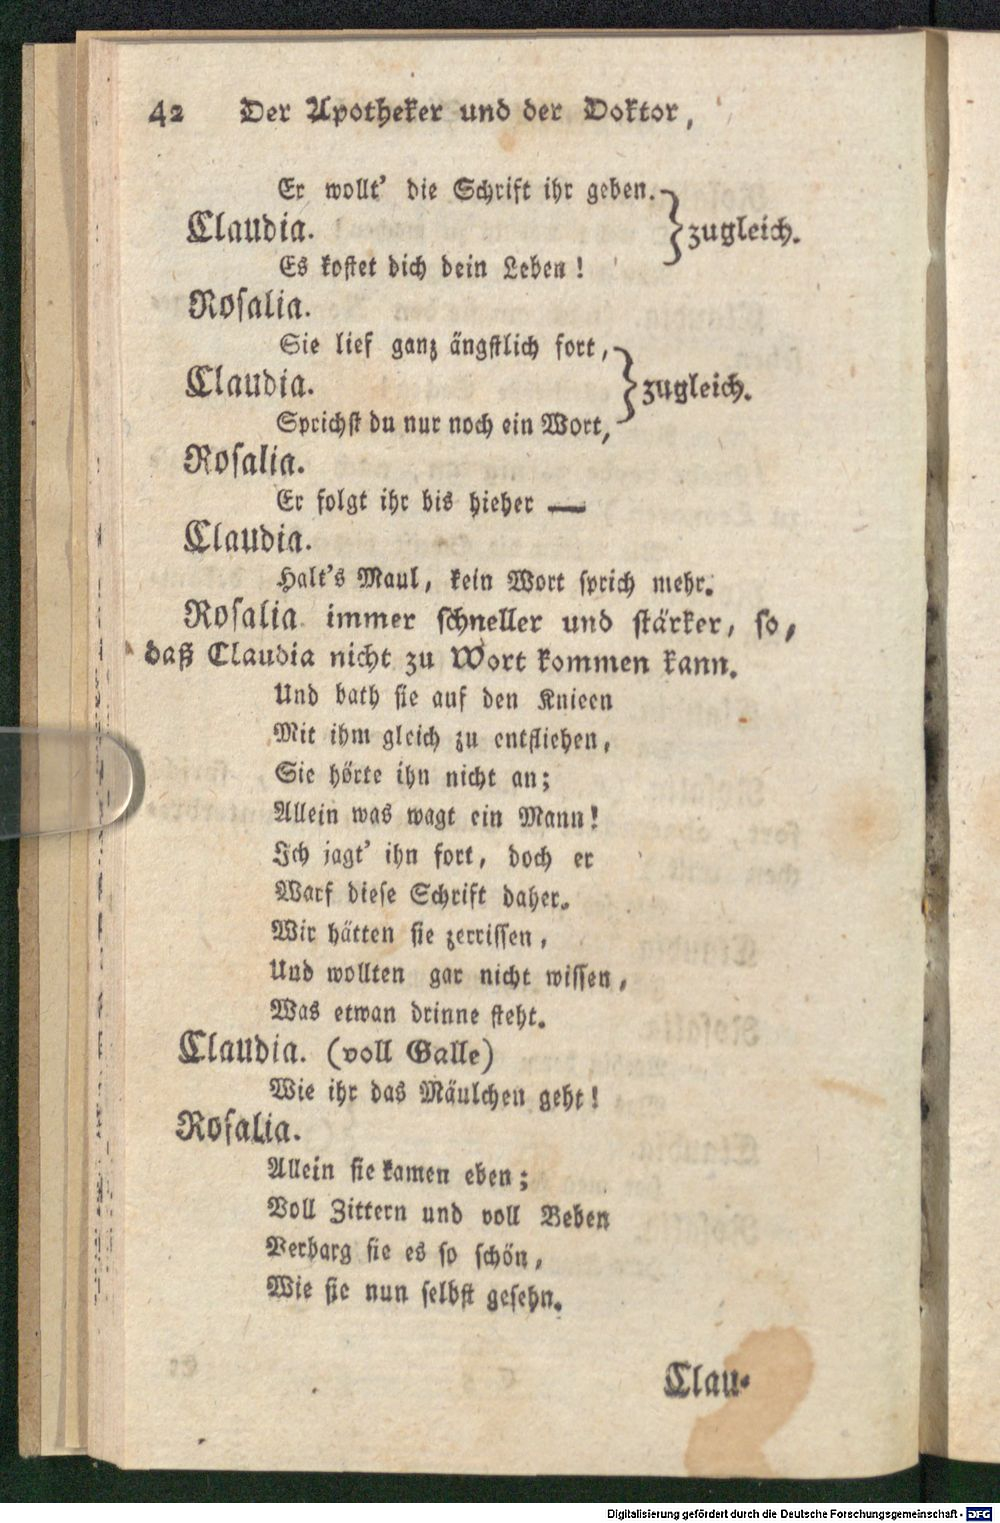 42 Der Apotheker und der Doktor,
Er wollt' die Schrift ihr geben.
Claudia.
zugleich.
Es kostet dich dein Leben!
Rosalia.
Sie lief ganz ängstlich fort,
Claudia.
zugleich.
Sprichst du nur noch ein Wort,
Rosalia.
Er folgt ihr bis hieher —
Claudia.
Halt's Maul, kein Wort sprich mehr.
Rosalia immer schneller und stärker, so,
daß Claudia nicht zu Wort kommen kann.
Und bath sie auf den Knieen
Mit ihm gleich zu entfliehen,
Sie hörte ihn nicht an;
Allein was wagt ein Mann!
Ich jagt' ihn fort, doch er
Warf diese Schrift daher.
Wir hätten sie zerrissen,
Und wollten gar nicht wissen,
Was etwan drinne steht.
Claudia. (voll Galle)
Wie ihr das Mäulchen geht!
Rosalia.
Allein sie kamen eben;
Voll Zittern und voll Beben
Verbarg sie es so schön,
Wie sie nun selbst gesehn.
Clau-
Digitalisierung gefördert durch die Deutsche Forschungsgemeinschaft - DFG